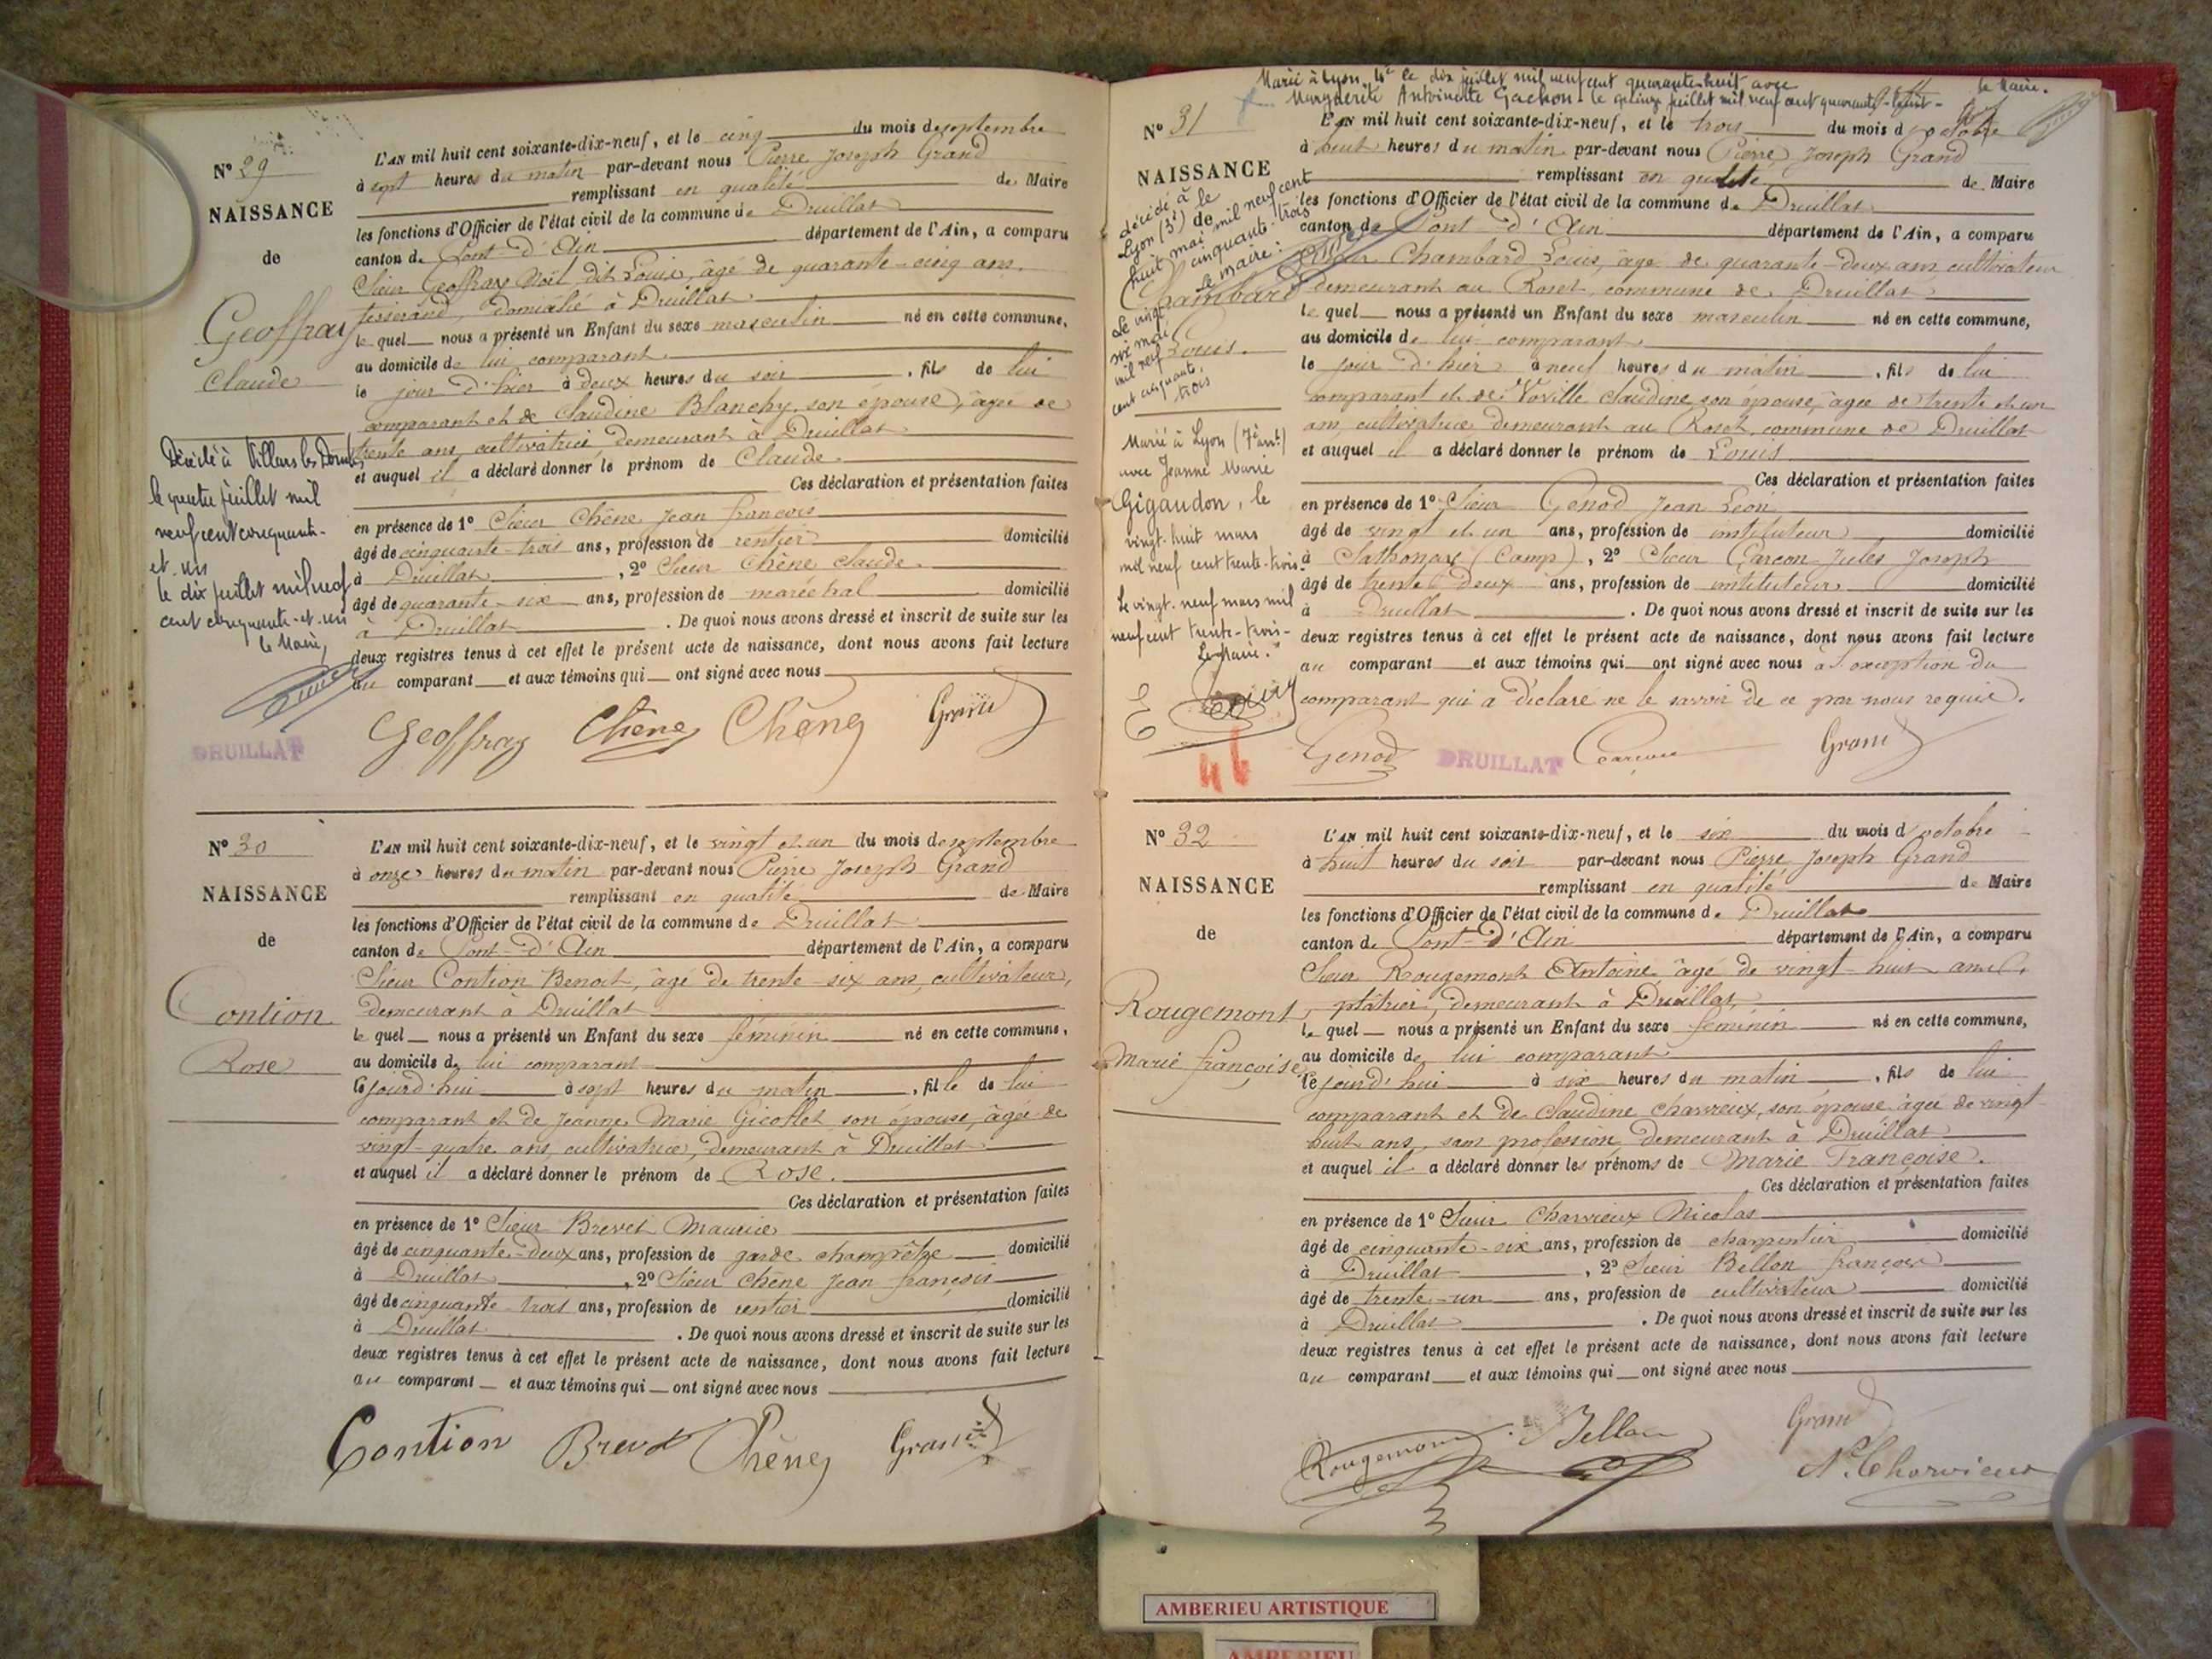 N° 29
NAISSANCE
de
Geoffray
Claude
Décédé à Villars les Dombes
le quatre juillet mil
neuf cent cinquante-
et-un
le dix juillet mil neuf
cent cinquante-et-un
le Maire,
L'AN mil huit cent soixante-dix-neuf, et le cinq du mois de septembre
à sept heures du matin par-devant nous Pierre Joseph Grand
remplissant en qualité de Maire
les fonctions d'Officier de l'état civil de la commune de Druillat
canton de Pont-d'Ain département de l'Ain, a comparu
Sieur Geoffray Noël, dit Louis, âgé de quarante-cinq ans,
tisserand, domicilié à Druillat
le quel nous a présenté un Enfant du sexe masculin né en cette commune,
au domicile de lui comparant
le jour d'hier à deux heures du soir, fils de lui
comparant et de Claudine Blanchy, son épouse, âgée de
trente ans, cultivatrice demeurant à Druillat
et auquel il a déclaré donner le prénom de Claude.
Ces déclaration et présentation faites
en présence de 1° Sieur Chêne Jean François
âgé de cinquante-trois ans, profession de rentier domicilié
à Druillat, 2° Sieur Chêne Claude
âgé de quarante-six ans, profession de maréchal domicilié
à Druillat. De quoi nous avons dressé et inscrit de suite sur les
deux registres tenus à cet effet le présent acte de naissance, dont nous avons fait lecture
au comparant et aux témoins qui ont signé avec nous
Geoffray Chêne Chêne Grand
DRUILLAT
N° 30
NAISSANCE
de
Contion
Rose
L'AN mil huit cent soixante-dix-neuf, et le vingt et un du mois de septembre
à onze heures du matin par-devant nous Pierre Joseph Grand
remplissant en qualité de Maire
les fonctions d'Officier de l'état civil de la commune de Druillat
canton de Pont-d'Ain département de l'Ain, a comparu
Sieur Contion Benoit, âgé de trente-six ans, cultivateur,
demeurant à Druillat
le quel nous a présenté un Enfant du sexe féminin né en cette commune,
au domicile de lui comparant
le jourd'hui à sept heures du matin, fille de lui
comparant et de Jeanne Marie Gicotlet son épouse, âgée de
vingt-quatre ans, cultivatrice, demeurant à Druillat
et auquel il a déclaré donner le prénom de Rose.
Ces déclaration et présentation faites
en présence de 1° Sieur Brevet Maurice
âgé de cinquante-deux ans, profession de garde champêtre domicilié
à Druillat, 2° Sieur Chêne Jean François
âgé de cinquante-trois ans, profession de rentier domicilié
à Druillat. De quoi nous avons dressé et inscrit de suite sur les
deux registres tenus à cet effet le présent acte de naissance, dont nous avons fait lecture
au comparant et aux témoins qui ont signé avec nous
Contion Brevet Chêne Grand
Marié à Lyon 4e le dix juillet mil neuf cent quarante-huit avec
Marguerite Antoinette Gachon. le quinze juillet mil neuf cent quarante-huit - le Maire.
N° 31
NAISSANCE
décédé à le
Lyon (3e) de
huit mai mil neuf cent
cinquante-trois
le maire:
Chambard
Louis.
Le vingt
six mai
mil neuf
cent cinquante-
trois
Marié à Lyon (7e arrt)
avec Jeanne Marie
Gigaudon, le
vingt-huit mars
mil neuf cent trente-trois.
Le vingt-neuf mars mil
neuf cent trente-trois-
Le Maire.
L'AN mil huit cent soixante-dix-neuf, et le trois du mois d'octobre
à huit heures du matin par-devant nous Pierre Joseph Grand
remplissant en qualité de Maire
les fonctions d'Officier de l'état civil de la commune de Druillat
canton de Pont-d'Ain département de l'Ain, a comparu
Sieur Chambard Louis, âgé de quarante-deux ans cultivateur
demeurant au Roset, commune de Druillat
le quel nous a présenté un Enfant du sexe masculin né en cette commune,
au domicile de lui comparant
le jour d'hier à neuf heures du matin, fils de lui
comparant et de Voville Claudine, son épouse, âgée de trente et un
ans, cultivatrice demeurant au Roset, commune de Druillat
et auquel il a déclaré donner le prénom de Louis
Ces déclaration et présentation faites
en présence de 1° Sieur Genod Jean Léon
âgé de vingt et un ans, profession de instituteur domicilié
à Sathonay (Camp), 2° Sieur Garçon Jules Joseph
âgé de trente deux ans, profession de instituteur domicilié
à Druillat. De quoi nous avons dressé et inscrit de suite sur les
deux registres tenus à cet effet le présent acte de naissance, dont nous avons fait lecture
au comparant et aux témoins qui ont signé avec nous à l'exception du
comparant qui a déclaré ne le savoir de ce par nous requis.
Genod DRUILLAT Garçon Grand
N° 32
NAISSANCE
de
Rougemont
Marie Françoise
L'AN mil huit cent soixante-dix-neuf, et le six du mois d'octobre
à huit heures du soir par-devant nous Pierre Joseph Grand
remplissant en qualité de Maire
les fonctions d'Officier de l'état civil de la commune de Druillat
canton de Pont-d'Ain département de l'Ain, a comparu
Sieur Rougemont Antoine âgé de vingt-huit ans,
plâtrier, demeurant à Druillat,
le quel nous a présenté un Enfant du sexe féminin né en cette commune,
au domicile de lui comparant
le jourd'hui à six heures du matin, fils de lui
comparant et de Claudine Charvieux, son épouse, âgée de vingt-
huit ans, sans profession, demeurant à Druillat
et auquel il a déclaré donner les prénoms de Marie Françoise.
Ces déclaration et présentation faites
en présence de 1° Sieur Charvieux Nicolas
âgé de cinquante-six ans, profession de charpentier domicilié
à Druillat, 2° Sieur Bellon François
âgé de trente-un ans, profession de cultivateur domicilié
à Druillat. De quoi nous avons dressé et inscrit de suite sur les
deux registres tenus à cet effet le présent acte de naissance, dont nous avons fait lecture
au comparant et aux témoins qui ont signé avec nous
Rougemont Bellon Grand
N. Charvieux
AMBERIEU ARTISTIQUE
AMBERIEU